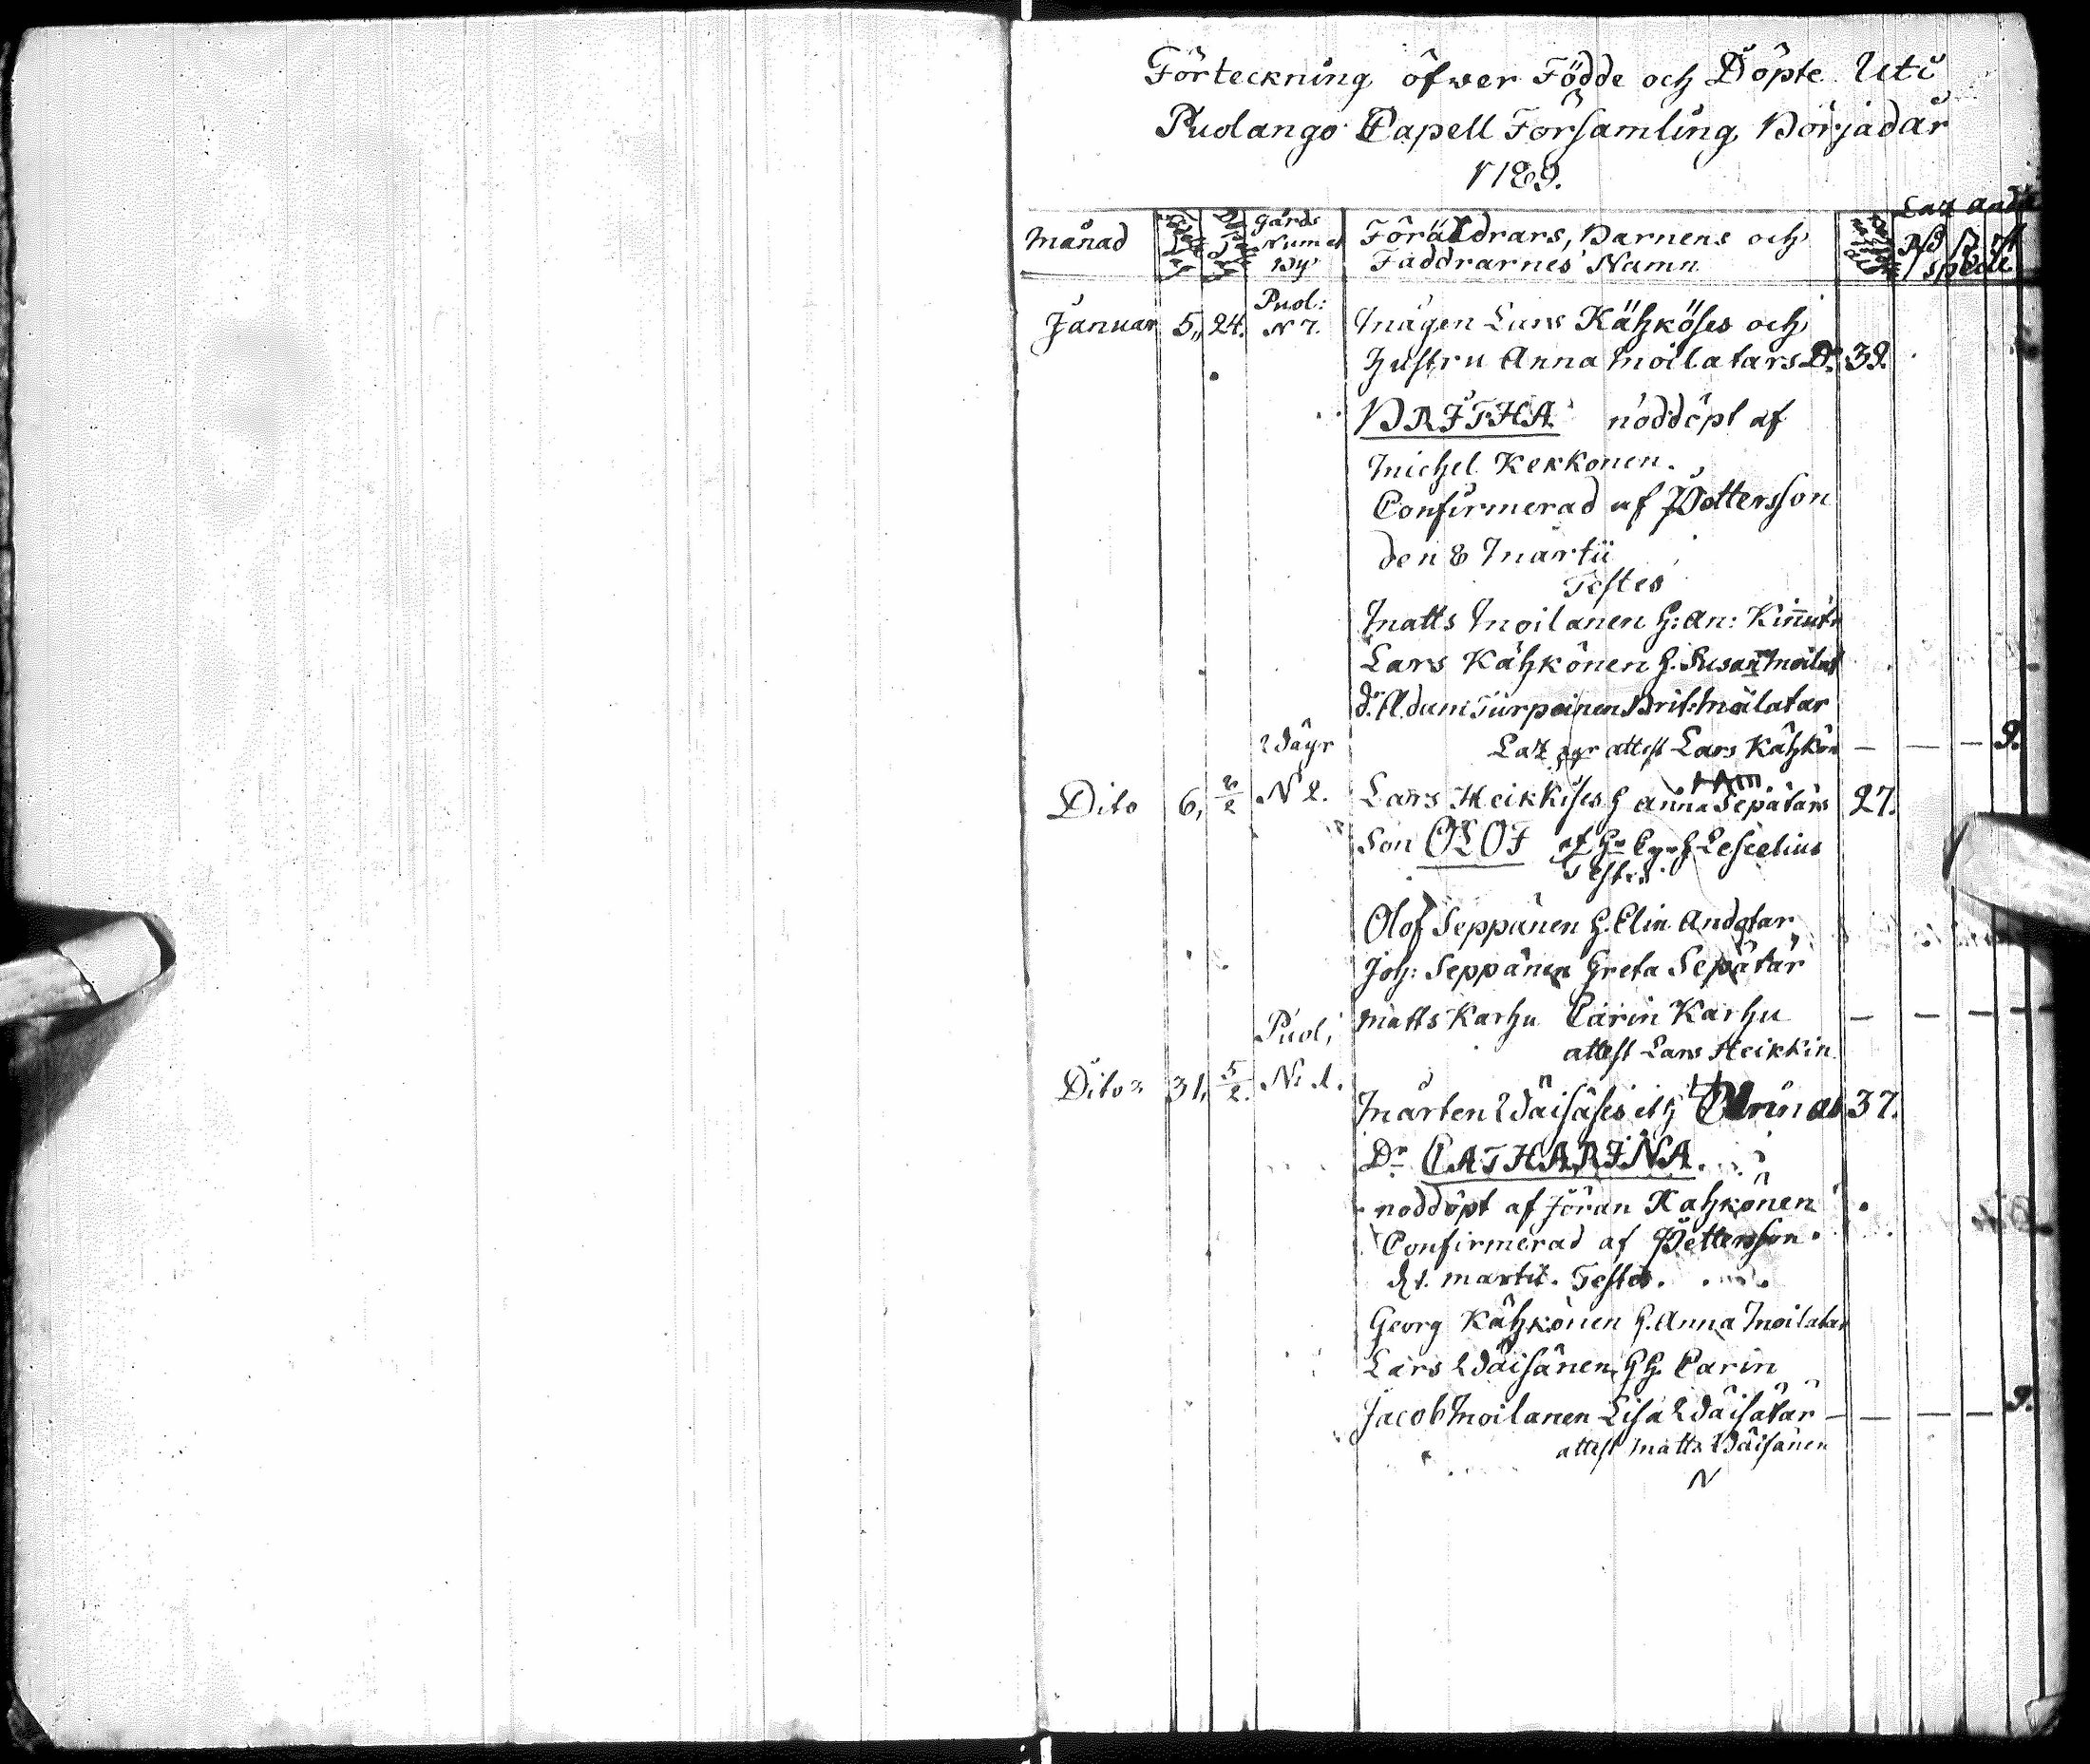 Förteckning öfwer Födde och Döpte Uti
Puolango Capell Församling Börjadår
1789.
Månad
Gårds
Num et
By
Föräldrars, Barnens och
Faddrarnes Namn
Januar 5, 24. Puol: N 7. Mågen Lars Kähköses och
Hustru Anna Moilatars Dr. 39.
BRITHA nöddöpt af
Michel Kekkonen.
Confirmerad af Pettersson
den 8 Martii
Testes
Matts Moilanen H: An:
Lars Kähkönen H. Susan Moilat
d. Adam Turpeinen Brit: Moilatar
attest Lars Kähkön — — — 9.
Dito 6, 2/2 Wäyr N 2. Lars Heikkises H Anna Sepätärs 27.
Son OLOF af
Testes
Olof Seppänen H. Elin Andotar
Joh: Seppänen Greta Sepätär
Matts Karhu Carin Karhu — — — —
attest Lars Heikkin
Dito 31, 5/2. Puol; N: 1. Mårten Wäisäses 37.
Dr CATHARINA.
noddöpt af Jöran Kahkönen
Confirmerad af Pettersson
d 1. martii. Testes.
Georg Kähkönen H. Anna Moilatar
Lars Wäisänen H H. Carin
Jacob Moilanen Lisa Wäisätär — — — — 9.
attest Matts Wäisänen
N